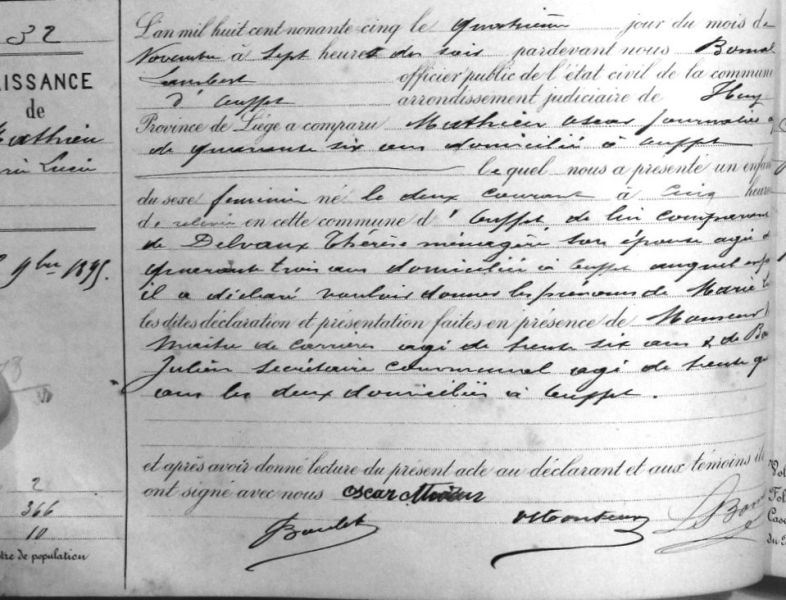 32
AISSANCE
de
Mathieu
Marie Lucie
9bre 1895.
2
366
10
tre de population
L'an mil huit cent nonante-cinq le quatrième jour du mois de
Novembre à sept heures du soir pardevant nous Bomal
Lambert officier public de l'état civil de la commune
d'Ouffet arrondissement judiciaire de Huy
Province de Liége a comparu Mathieu Oscar journalier
de quarante six ans domicilié à Ouffet
lequel nous a présenté un enfant
du sexe féminin né le deux courant à cinq heures
de relevée en cette commune d'Ouffet de lui comparant
de Delvaux Thérèse ménagère son épouse agée
quarante trois ans domiciliée à Ouffet auquel enfant
il a déclaré vouloir donner les prénoms de Marie
les dites déclaration et présentation faites en présence de
Maître de carrières agé de trente six ans & de
Julien Secrétaire communal agé de trente
ans les deux domiciliés à Ouffet.
et après avoir donné lecture du présent acte au déclarant et aux témoins
ont signé avec nous Oscar Mathieu